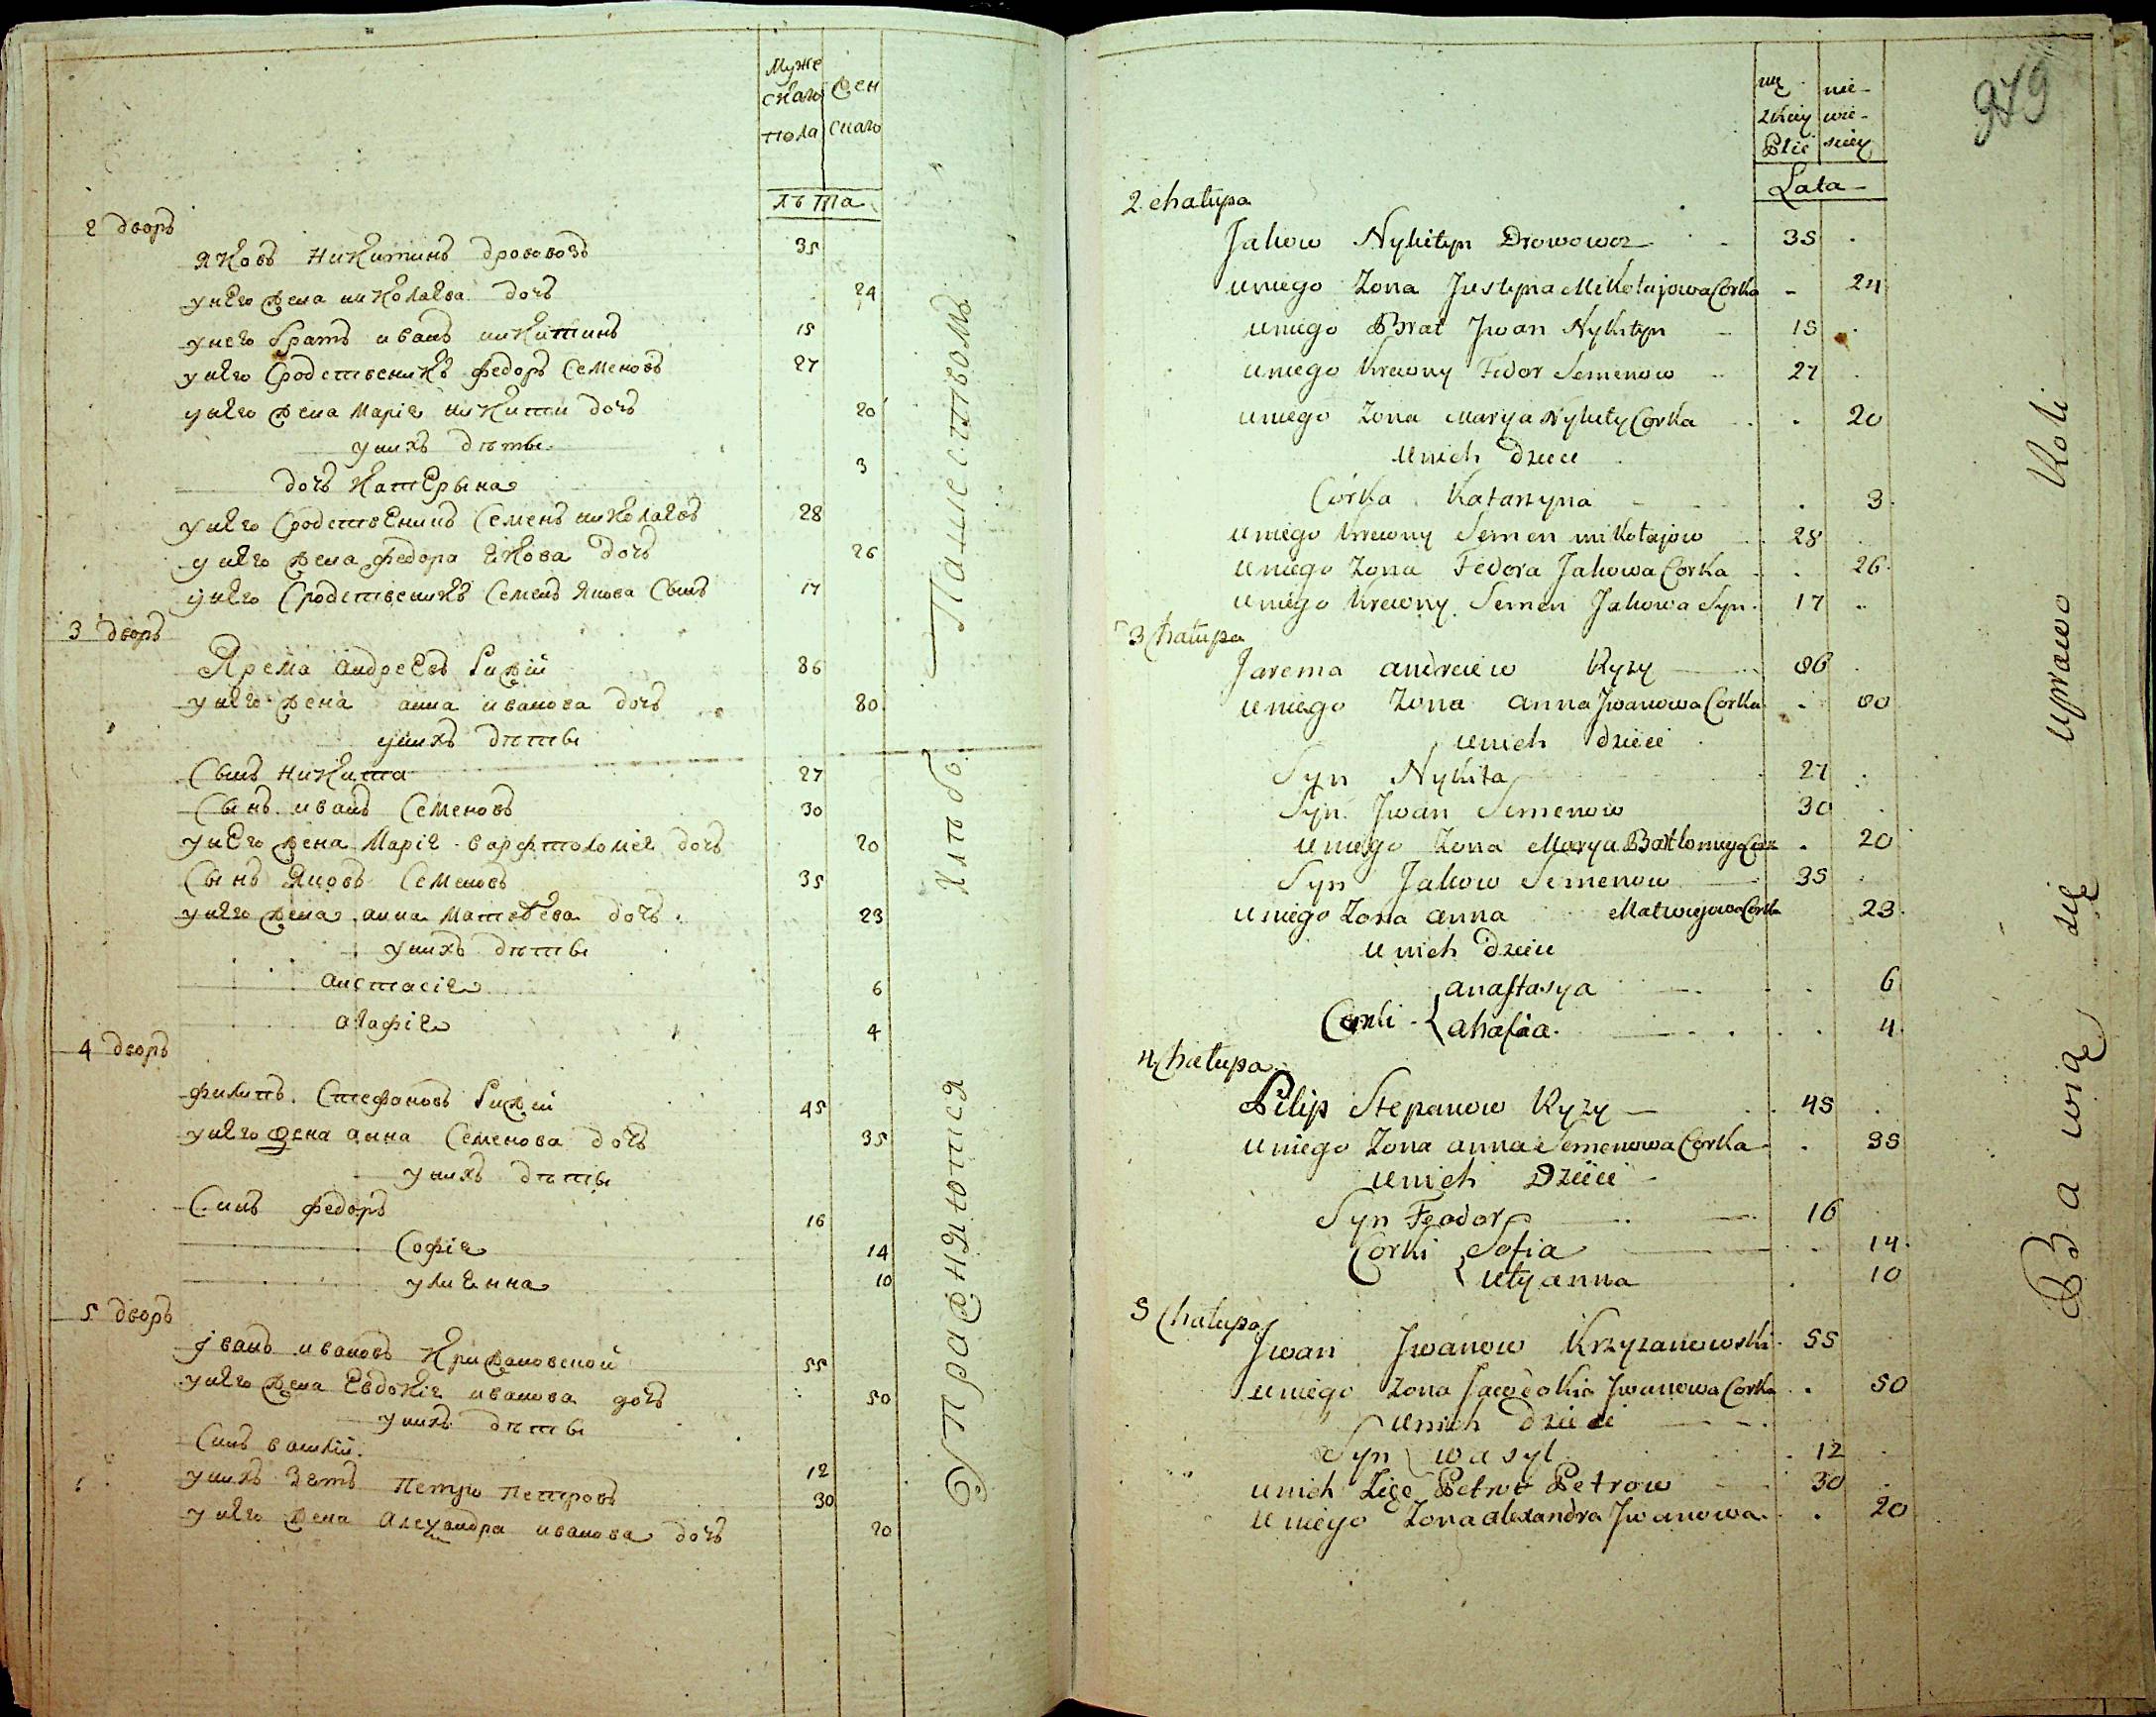 Муже
скаго Жен
пола скаго
лѣта
2 дворъ
Яковъ Никитинъ дрововозъ 35
у него жена николаева дочь 24
у него братъ иванъ никитинъ 15
у него сродственикъ федоръ Семеновъ 27
у него жена Марія никити дочь 20
у нихъ дѣты
дочь Катерына 3
у него сродственикъ Семенъ николаевъ 28
у него жена федора якова дочь 26
у него сродственикъ Семенъ якова Сынъ 17
3 дворъ
Ярема андреевъ рижій 86
у него жена анна иванова дочь 80
у нихъ дѣты
Сынъ Никита 27
Сынъ иванъ Семеновъ 30
у него жена Марія варфтоломія дочь 20
Сынъ Яковъ Семеновъ 35
у него жена анна Матвѣева дочь 23
у нихъ дѣты
анстасія 6
агафія 4
4 дворъ
филипъ Стефановъ рижій 45
у него жена анна Семенова дочь 35
у нихъ дѣты
Синъ федоръ 16
Софія 14
улиянна 10
5 дворъ
Іванъ ивановъ Крижановской 55
у него жена Евдокія иванова дочь 50
у нихъ дѣты
Синъ 12
у нихъ зять петро петровъ 30
у него жена Александра иванова дочь 20
Упражняются хлѣбо пашествомъ
979
mę nie-
zkiey wie-
Płci sciey
Lata
2 chałupa
Jakow Nykityn Drowowoz 35
u niego Zona Justyna Mikołajowa Corka 24
u niego Brat Jwan Nykityn 15
u niego krewny Fedor Semenow 27
u niego Zona Marya Nykity Corka 20
u nich dzieci
Córka Katarzyna 3
u niego krewny Semen mikołajow 28
u niego Zona Fedora Jakowa Corka 26
u niego krewny Semen Jakowa Syn 17
3 Chałupa
Jarema andreiew Ryzy 86
u niego Zona anna Jwanowa Corka 80
u nich dzieci
Syn Nykita 27
Syn Jwan Semenow 30
u niego Zona Marya Bartłomieya Cor 20
Syn Jakow Semenow 35
u niego Zona anna Matwiejowa Corka 23
u nich dzieci
anastasya 6
Corki ahafia 4
4 Chałupa
Pilip Stepanow Ryzy 45
u niego Zona anna Semenowa Corka 35
u nich Dzieci
Syn Feodor 16
Corki Sofia 14
ulyanna 10
5 Chałupa
Jwan Jwanow Krzyzanowski 55
u niego Zona Jawdokia Jwanowa Corka 50
u nich dzieci
Syn wasyl 12
u nich Zięć Petro Petrow 30
u niego Zona alexandra Jwanowa 20
Bawią się uprawo Roli